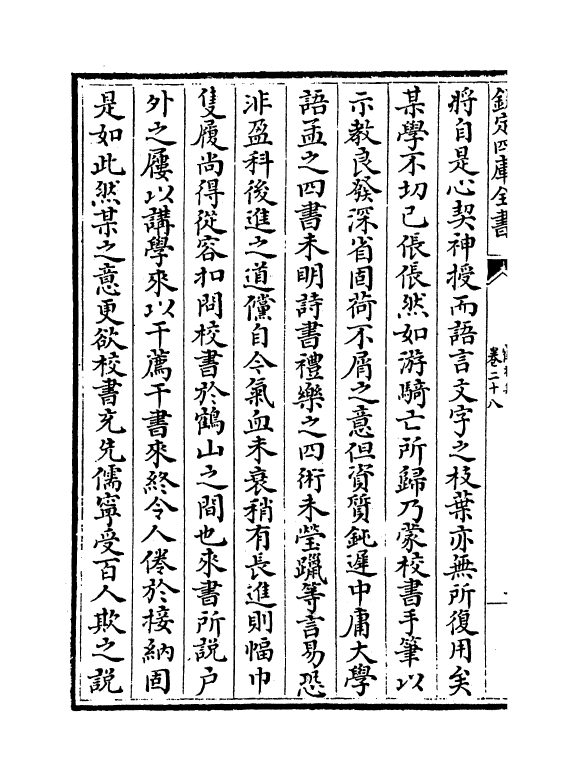 欽定四庫全書
卷二十八
將自是心契神授而語言文字之枝葉亦無所復用矣
某學不切己倀倀然如游騎亡所歸乃蒙校書手筆以
示教良發深省固荷不屑之意但資質鈍遲中庸大學
語孟之四書未明詩書禮樂之四術未瑩躐等言易恐
非盈科後進之道儻自今氣血未衰稍有長進則幅巾
隻履尚得從容扣問校書於鶴山之間也來書所說戶
外之屨以講學來以干薦干書來終令人倦於接納固
是如此然某之意更欲校書充先儒寧受百人欺之說